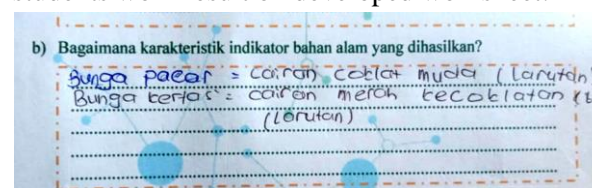 b) Bagaimana karakteristik indikator bahan alam yang dihasilkan?
Bunga pacar = cairan coklat muda (larutan
Bunga kertas = cairan merah kecoklatan
(larutan)